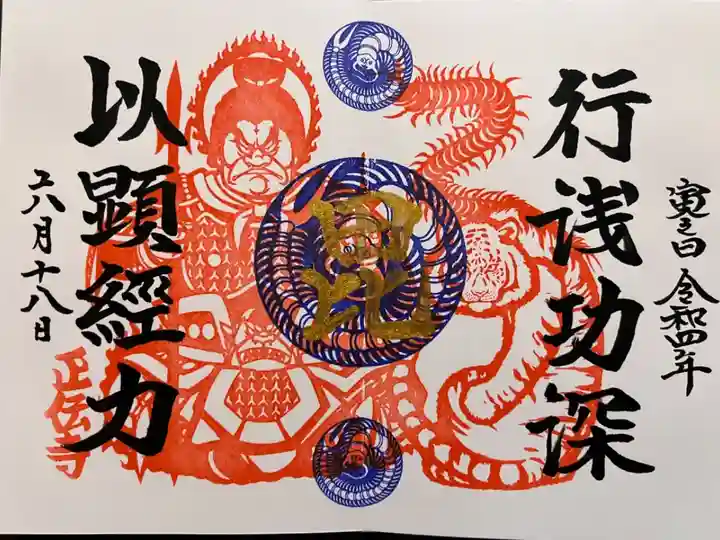 寅之日 令和四年
行浅功深
毘
以顕經力
六月十八日
正伝寺